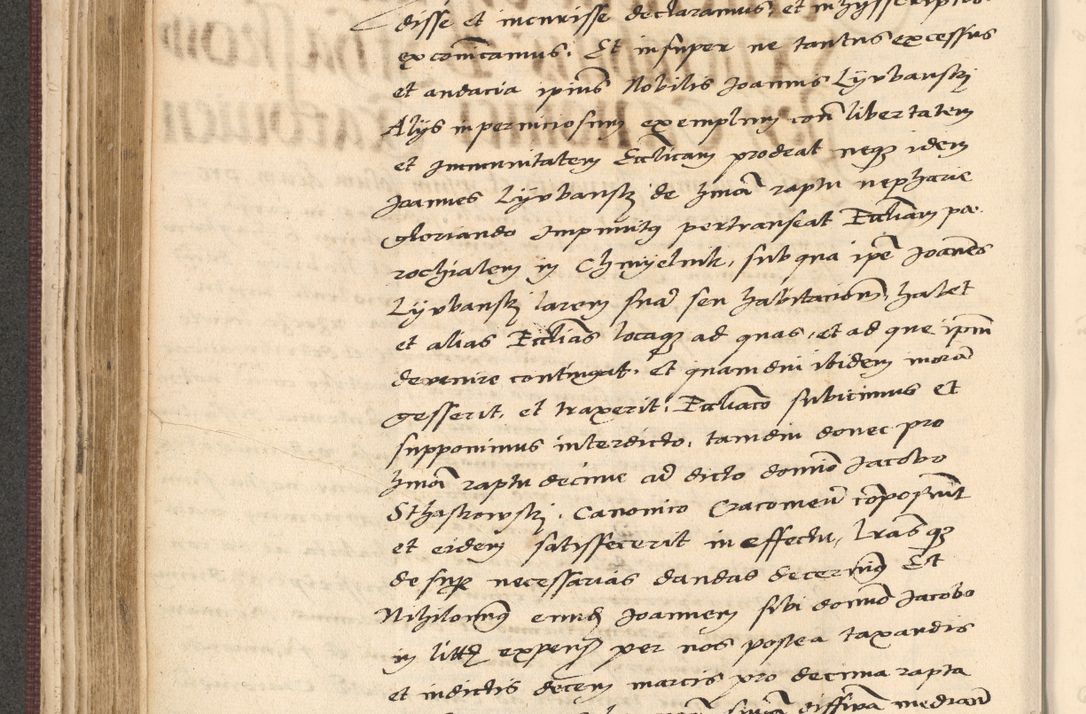 disse et incurisse declaramus, et in hysscriptis
excoīcamus. Et insuper ne tantus excessus
et audacia ipius Nobilis Joannis Lyvbansky
Alys in perniciosum exemplum con libertatem
et Immunitatem Ecclicam prodeat neq3 idem
Joannes Lyvbansky de hmōi raptu nepharie
gloriando Impunitus pertranseat Eccliam pa-
rochialem in Chmyelnik, sub qua ipē Joannes
Lyvbansky larem suū seu habitacionem habet
et alias Ecclias locaq3 ad quas, et ad que ipm
devenire contingat, et quamdiu ibidem morā
gesserit, et traxerit, Eccliaco subicimus et
supponimus interdicto, tamdiu donec pro
hmōi raptu decime cū dicto domino Jacobo
Sthaskowsky, Canonico Cracovien composuerit
et eidem satisfecerit in effectu, lrasq3
desup necessarias dandas decernimus Et
Nihilominus eundem Joannem sibi domino Jacobo
in litis expensis per nos postea taxandis
et indictis decem marcis pro decima rapta
diffiniā mediante